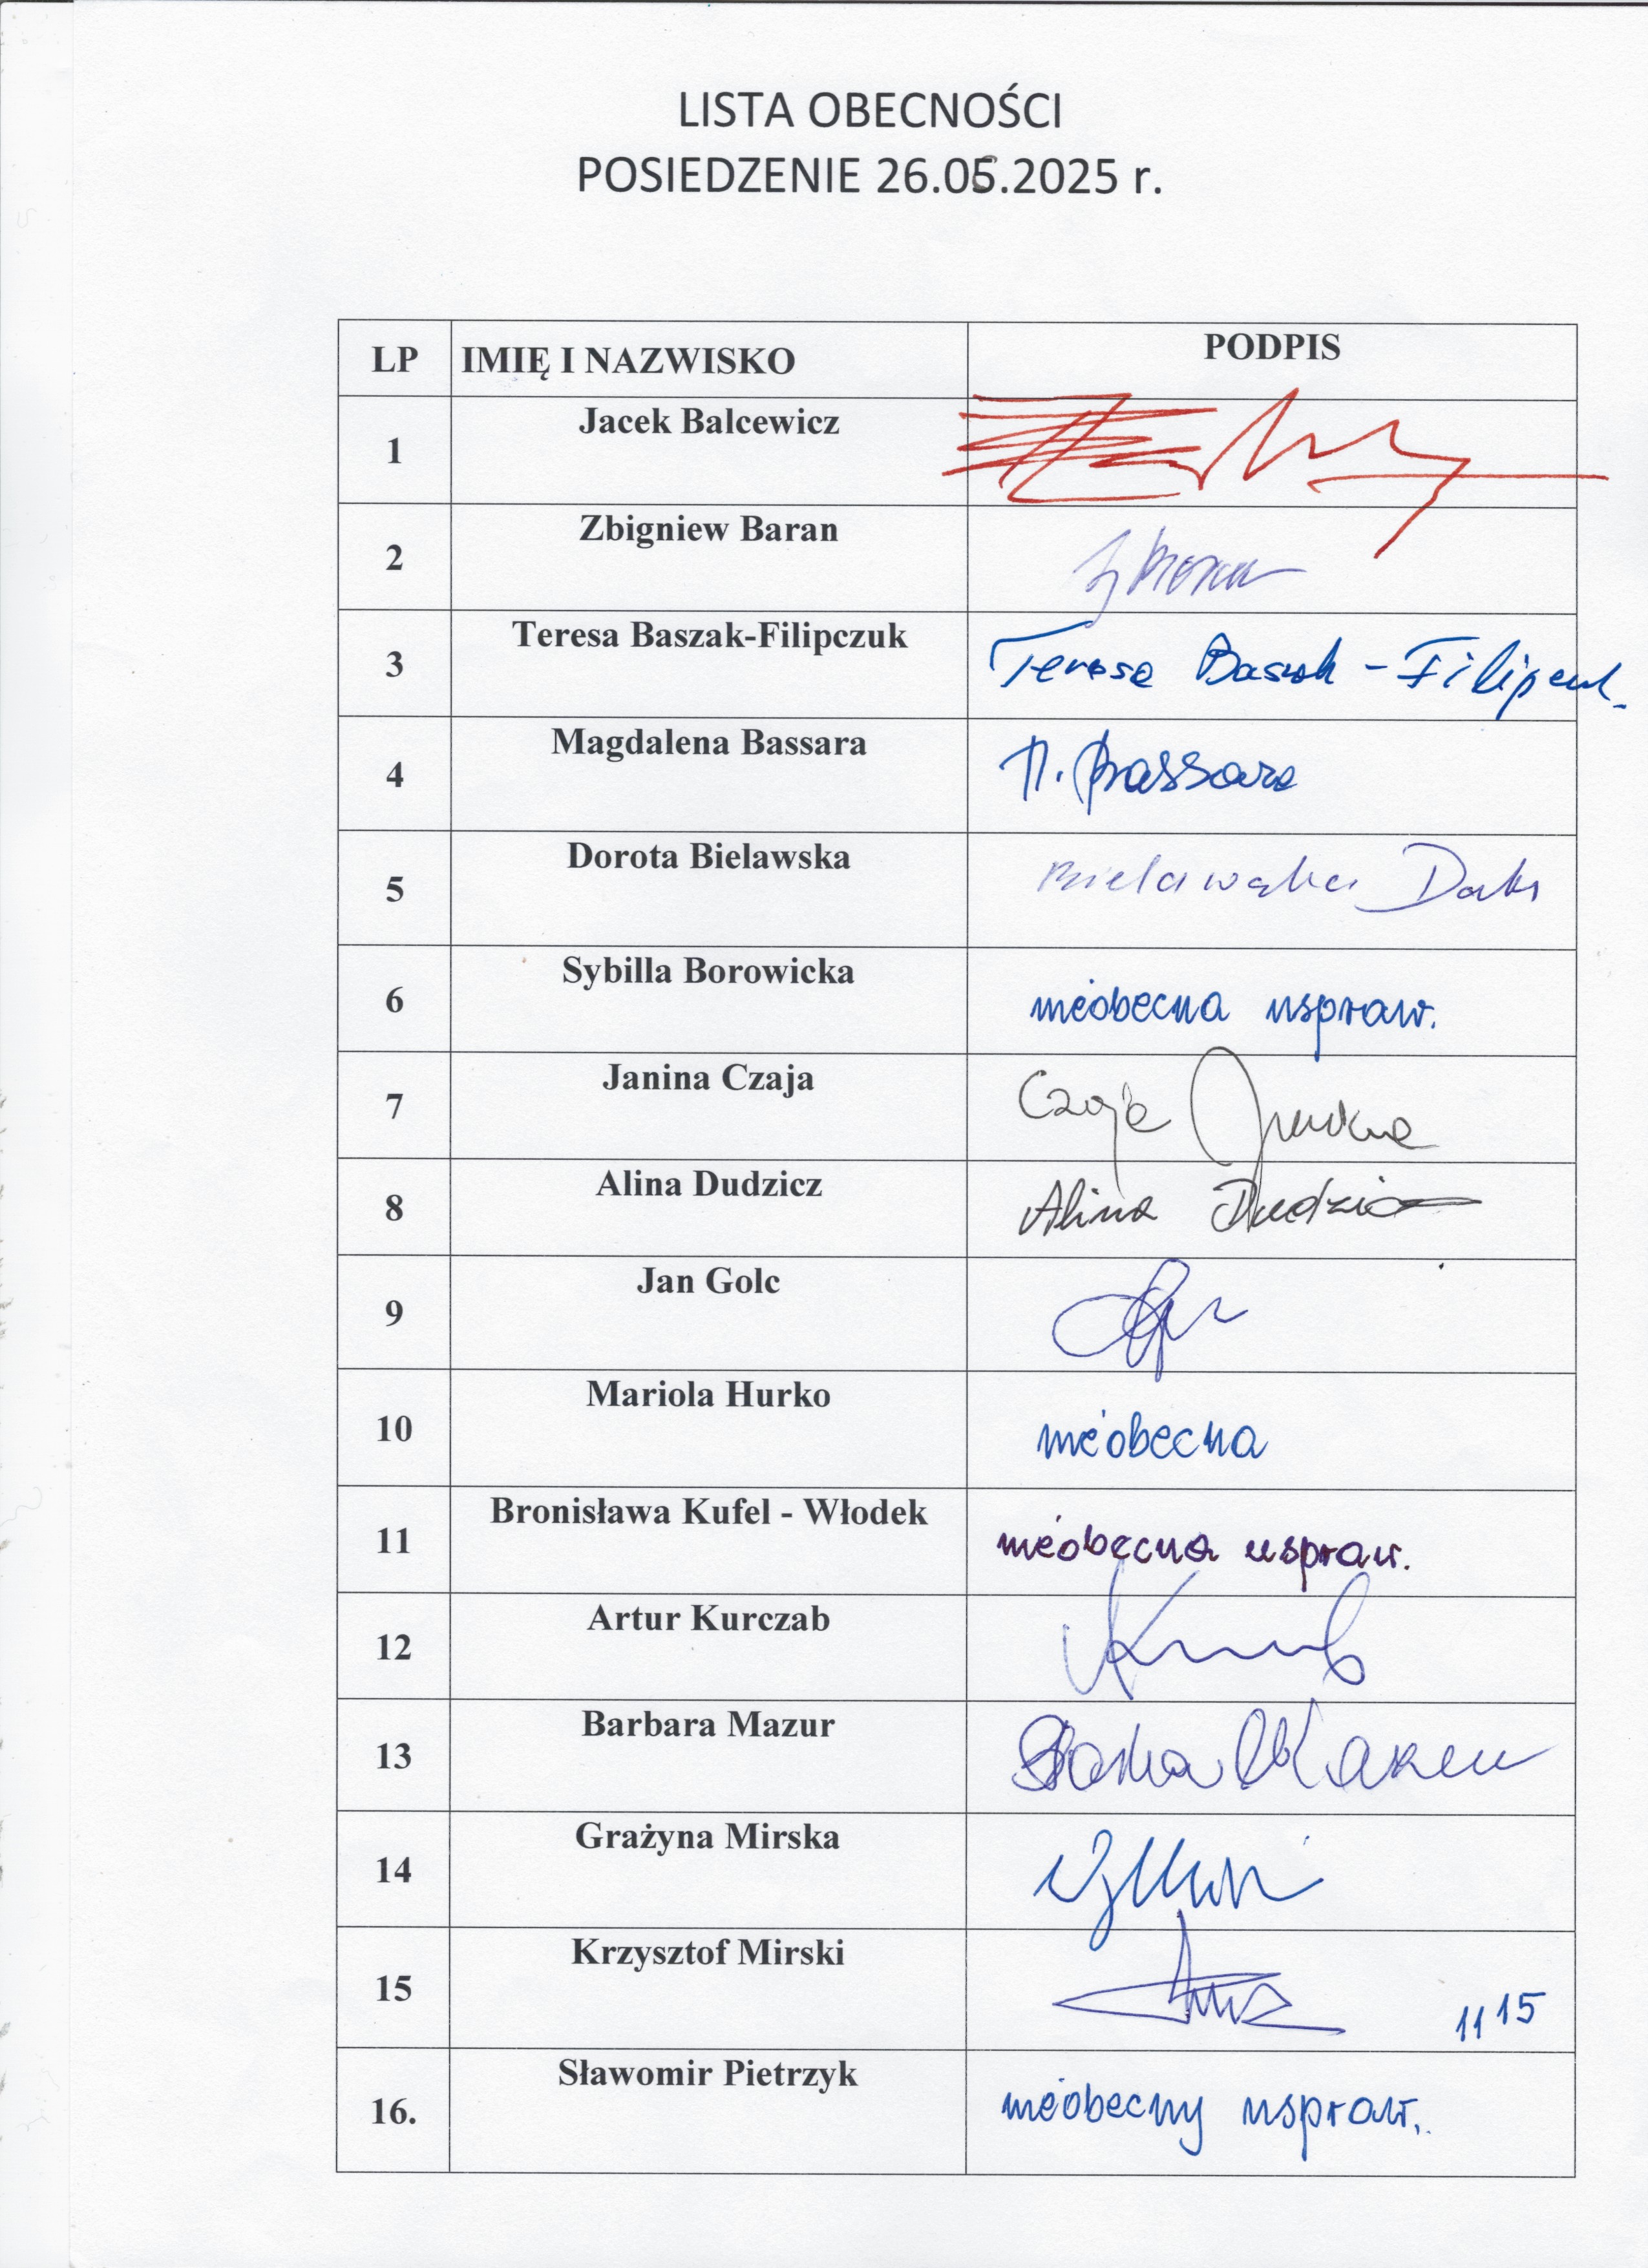 LISTA OBECNOŚCI
POSIEDZENIE 26.05.2025 r.
LP IMIĘ I NAZWISKO PODPIS
1 Jacek Balcewicz
2 Zbigniew Baran
3 Teresa Baszak-Filipczuk Teresa Baszak - Filipczuk
4 Magdalena Bassara M. Bassara
5 Dorota Bielawska Bielawska Dorota
6 Sybilla Borowicka nieobecna uspraw.
7 Janina Czaja Czaja Janina
8 Alina Dudzicz Alina Dudzicz
9 Jan Golc
10 Mariola Hurko nieobecna
11 Bronisława Kufel - Włodek nieobecna uspraw.
12 Artur Kurczab
13 Barbara Mazur
14 Grażyna Mirska
15 Krzysztof Mirski 11 15
16. Sławomir Pietrzyk nieobecny uspraw.